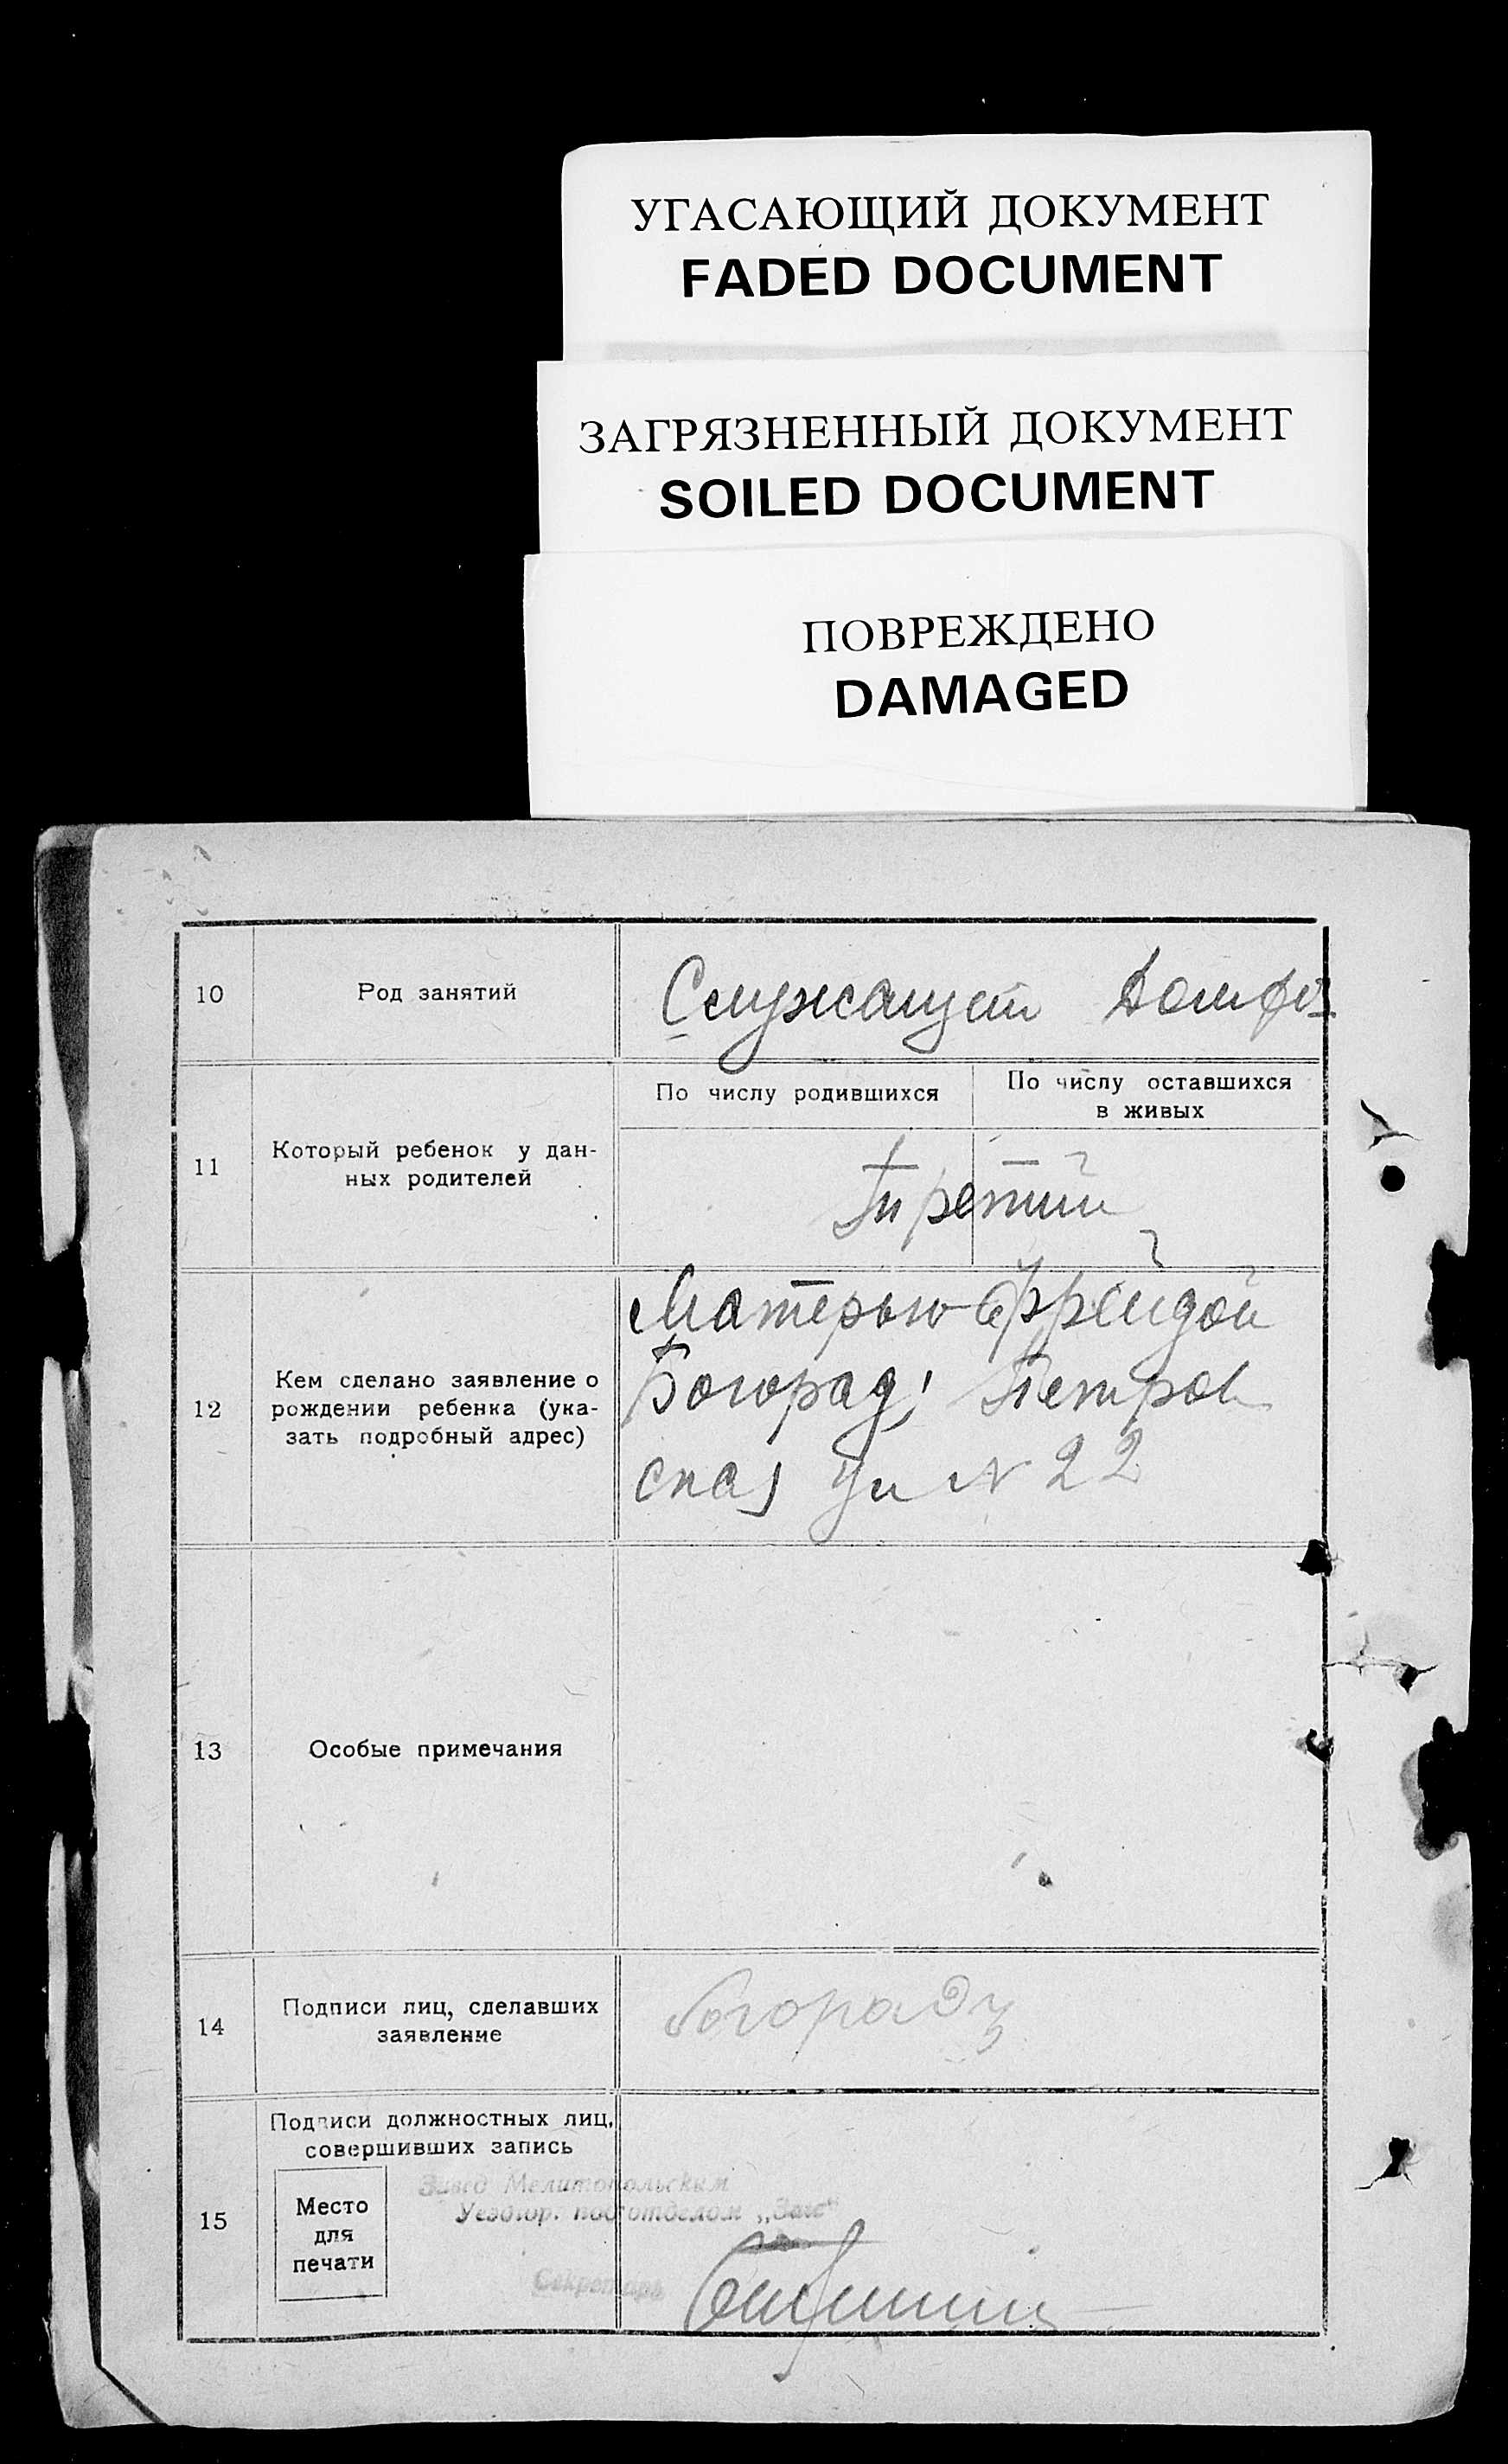 УГАСАЮЩИЙ ДОКУМЕНТ
FADED DOCUMENT
ЗАГРЯЗНЕННЫЙ ДОКУМЕНТ
SOILED DOCUMENT
ПОВРЕЖДЕНО
DAMAGED
10
Род занятий
Служащий
11
Который ребенок у дан-
ных родителей
По числу родившихся
По числу оставшихся
в живых
Третий
12
Кем сделано заявление о
рождении ребенка (ука-
зать подробный адрес)
Матерью Фрейдой
Богорад; Петров
ская ул N 22
13
Особые примечания
14
Подписи лиц, сделавших
заявление
15
Подписи должностных лиц,
совершивших запись
Место
для
печати
Завед Мелитопольским
Уездгор. подотделом „Загс“
Секретарь